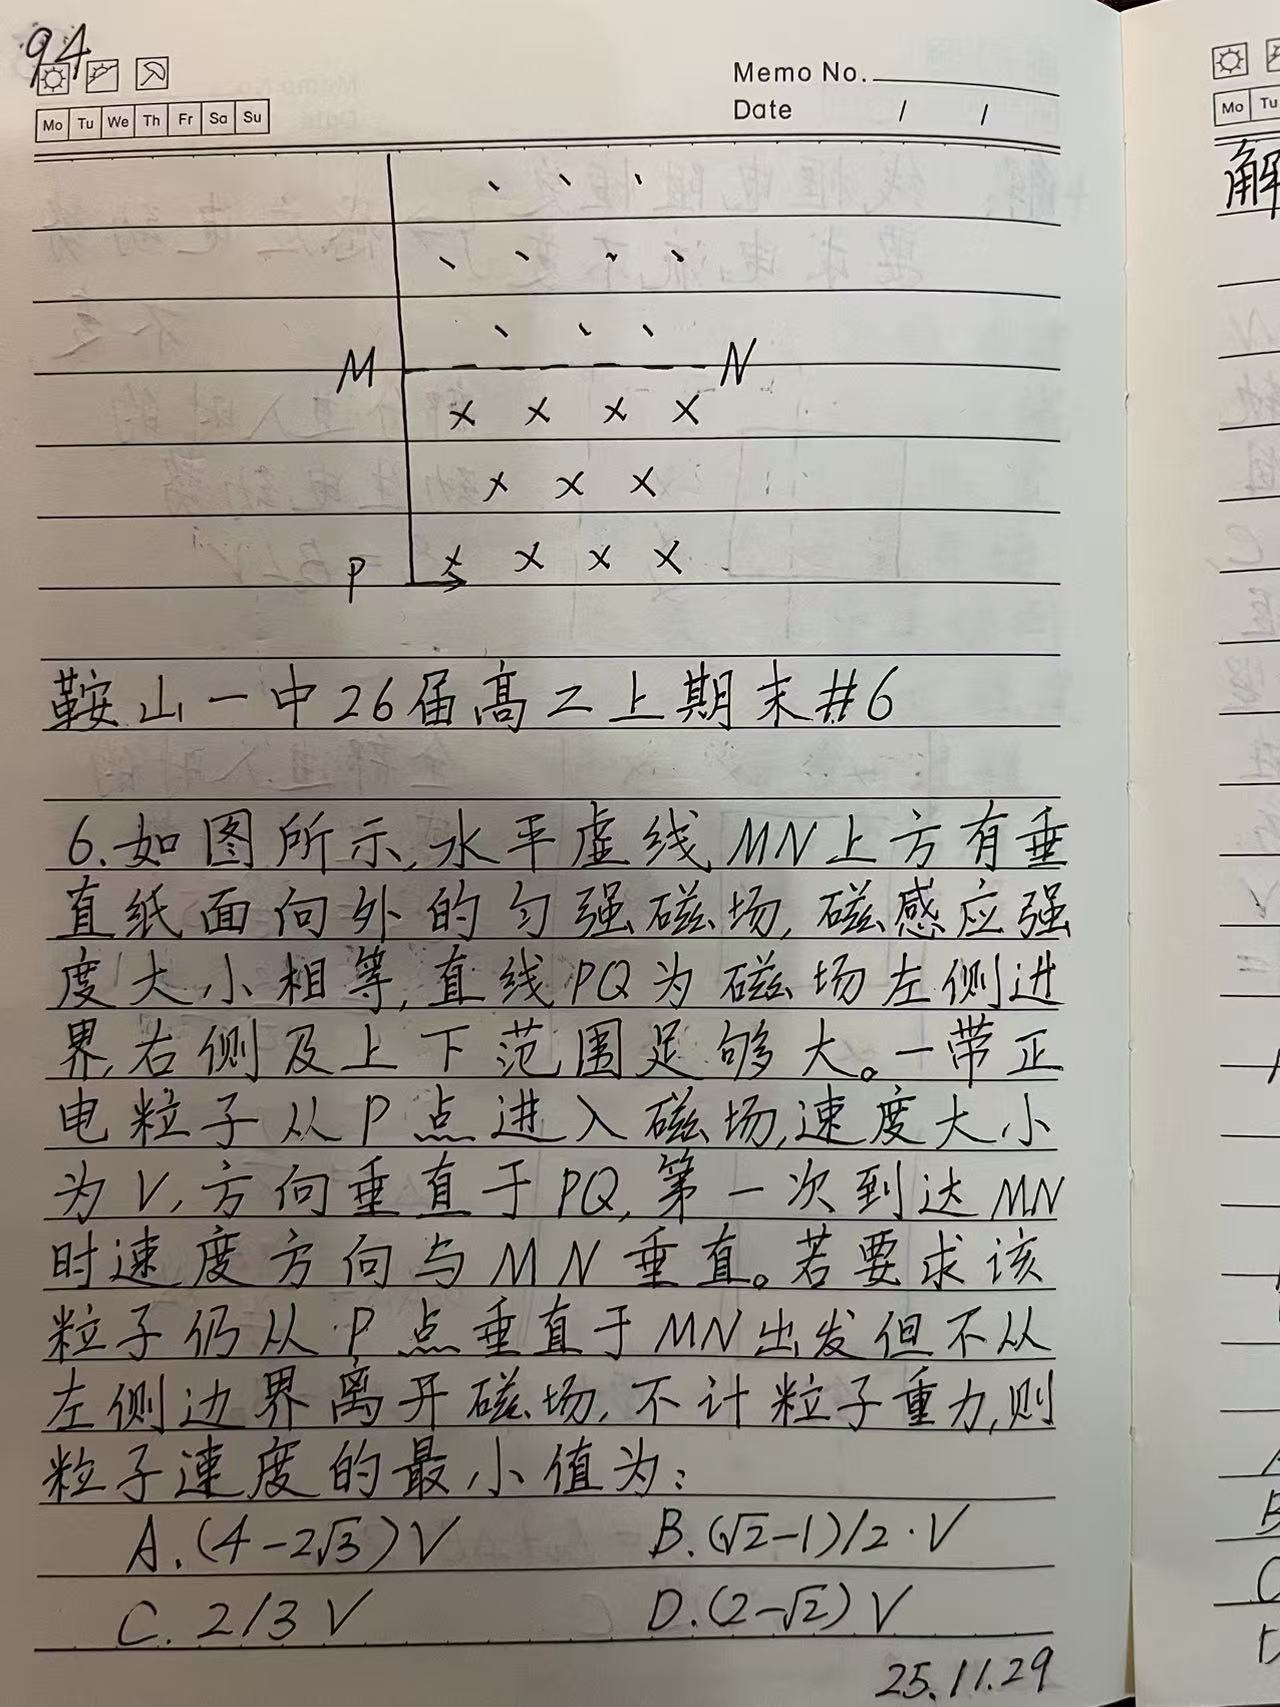 94
Memo No.
Mo Tu We Th Fr Sa Su
Date / /
M N
P
鞍山一中26届高二上期末#6
6.如图所示,水平虚线MN上方有垂
直纸面向外的匀强磁场,磁感应强
度大小相等,直线PQ为磁场左侧进
界,右侧及上下范围足够大。一带正
电粒子从P点进入磁场,速度大小
为V,方向垂直于PQ,第一次到达MN
时速度方向与MN垂直。若要求该
粒子仍从P点垂直于MN出发但不从
左侧边界离开磁场,不计粒子重力,则
粒子速度的最小值为:
A.(4-2√3)V B.(√2-1)/2·V
C. 2/3 V D.(2-√2)V
25.11.29
Mo Tu
解